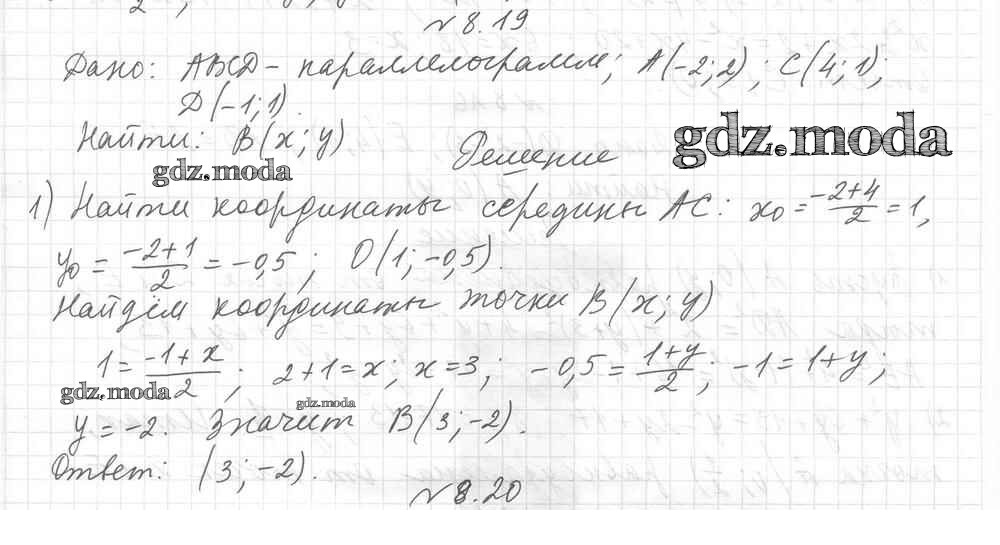 № 8.19
Дано: ABCD - параллелограмм; A(-2;2); C(4;1);
D(-1;1).
Найти: B(x;y)
gdz.moda
Решение
gdz.moda
1) Найти координаты середины AC: x₀ = (-2+4)/2 = 1,
y₀ = (-2+1)/2 = -0,5; O(1;-0,5).
Найдём координаты точки B(x;y)
1 = (-1+x)/2; 2+1=x; x=3; -0,5 = (1+y)/2; -1=1+y;
gdz.moda
gdz.moda
y=-2. Значит B(3;-2).
Ответ: (3;-2).
№ 8.20